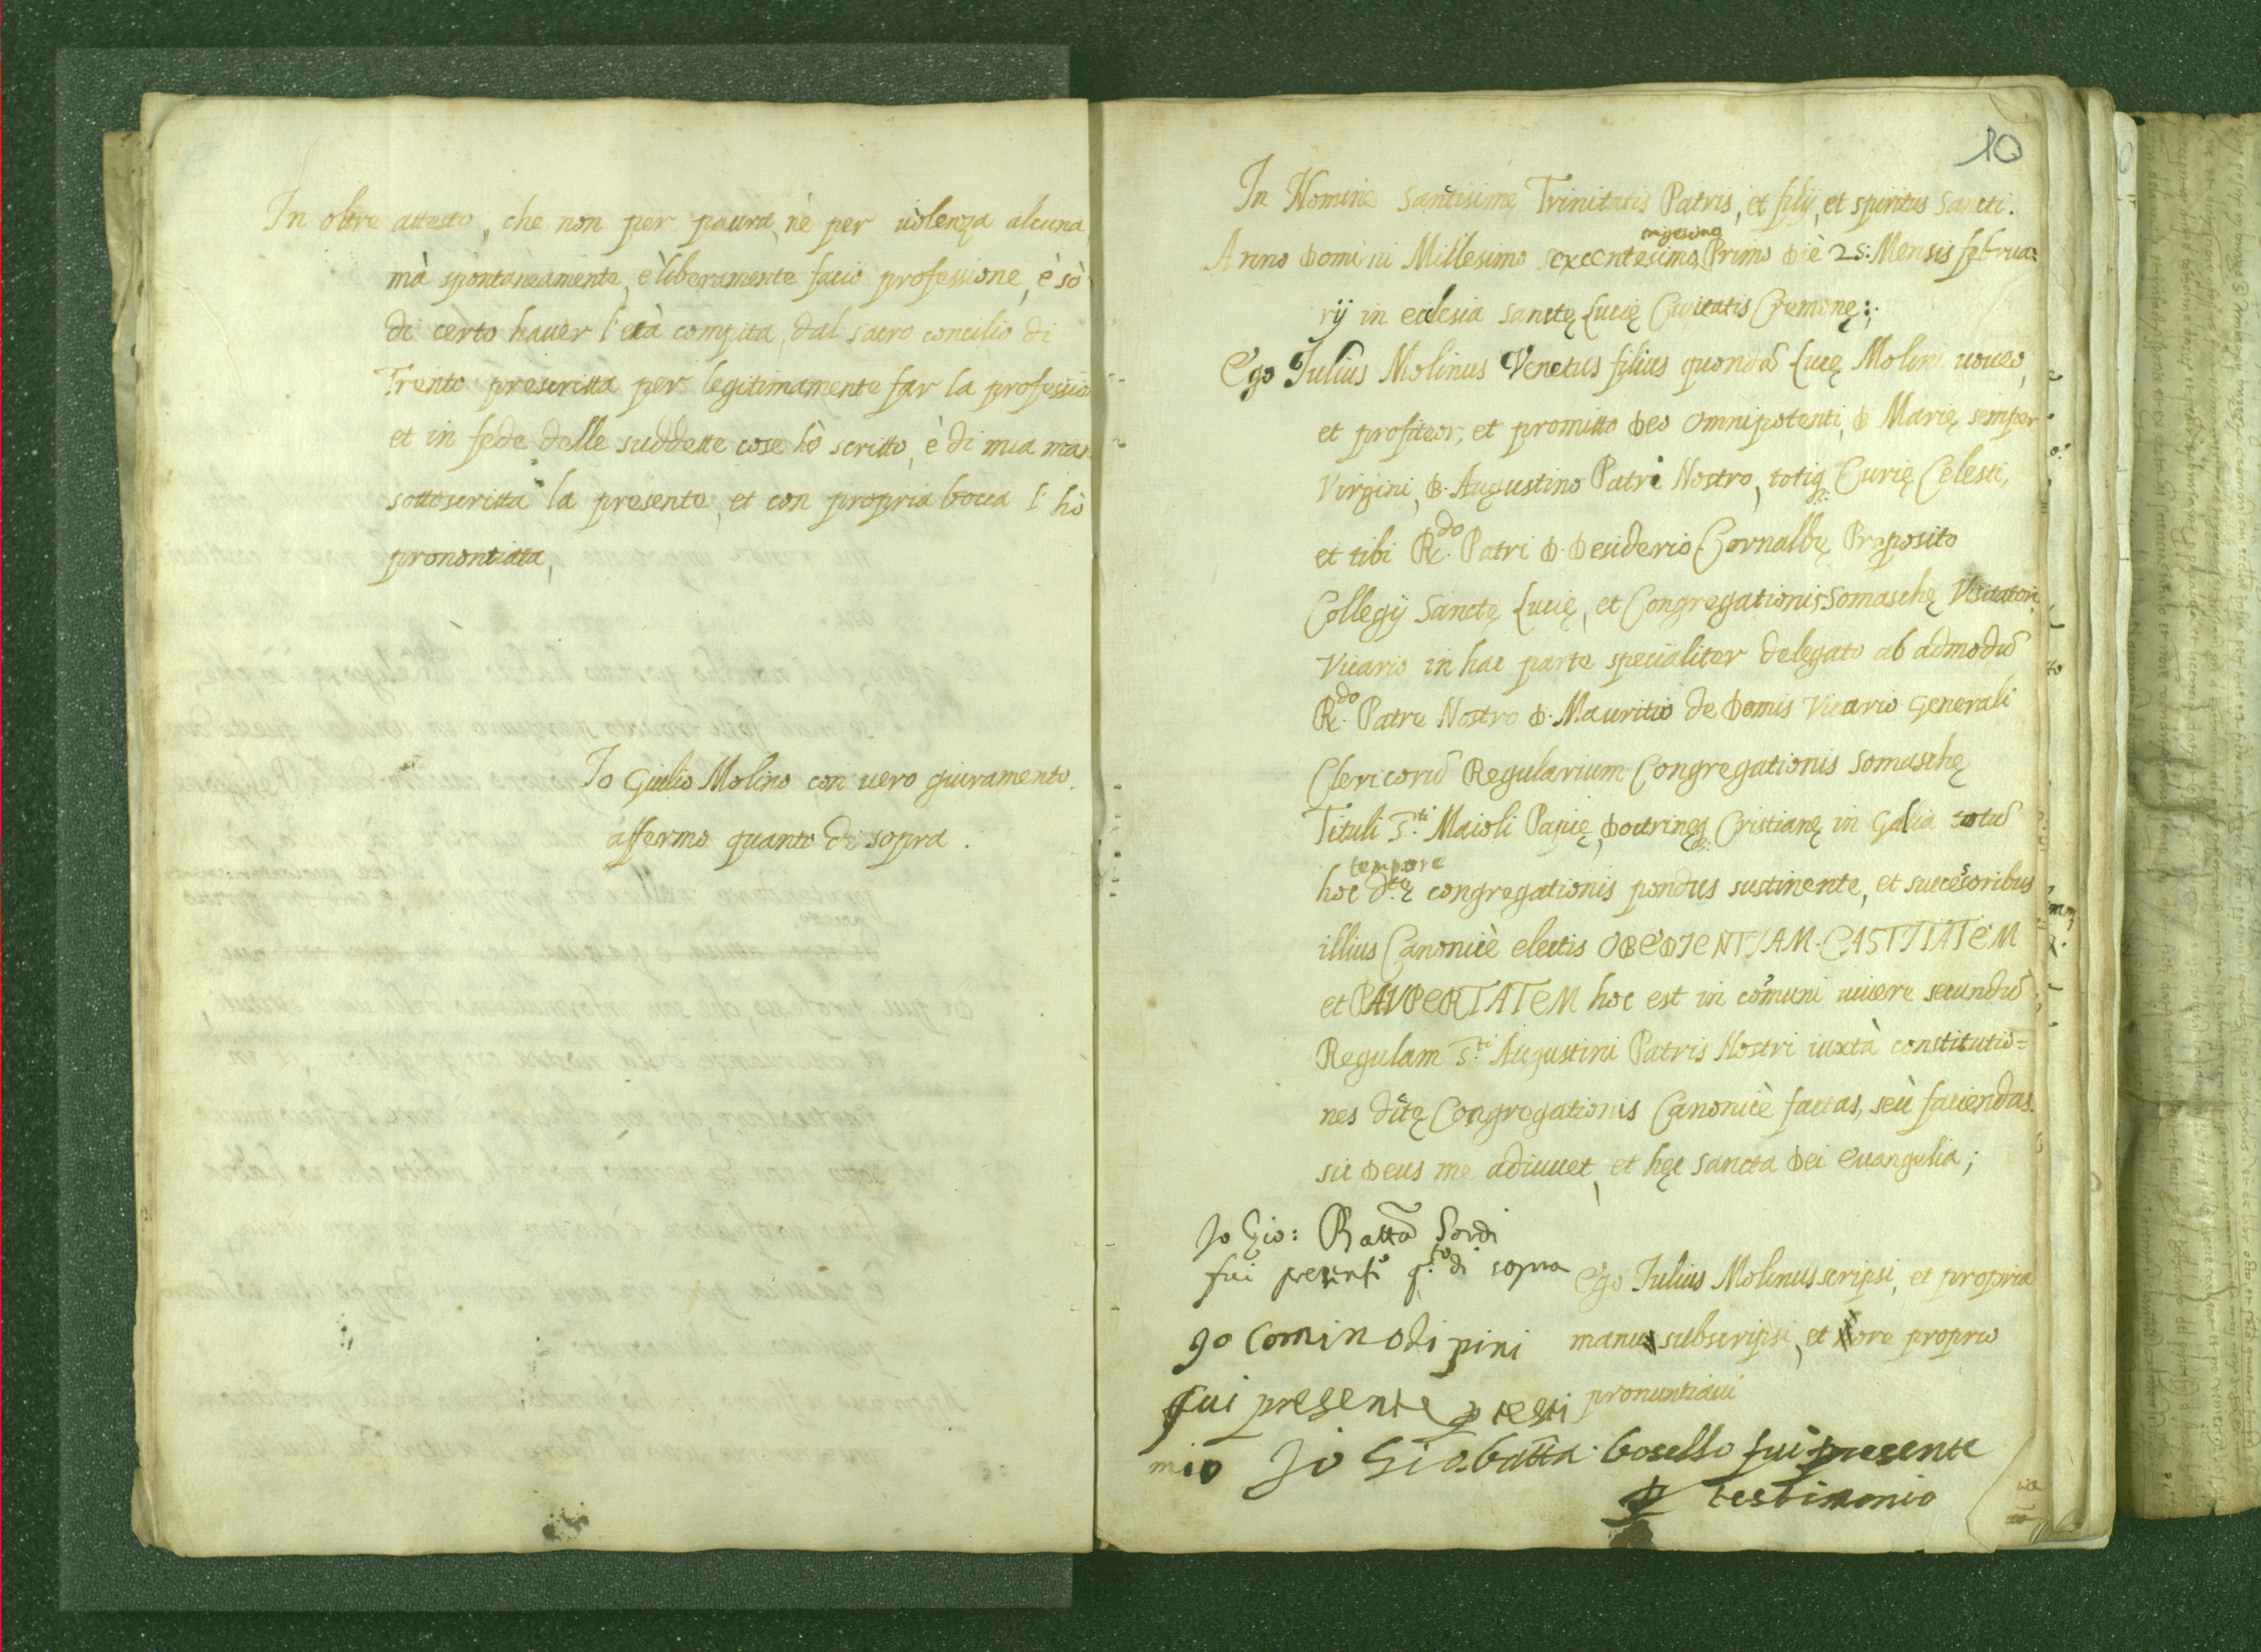 In oltre attesto, che non per paura, nè per uiolenza alcuna
mà spontaneamente, è liberamente facio professione, è sò
di certo hauer l'età compita, dal sacro concilio di
Trento prescritta per legitimamente far la professio
et in fede delle suddette cose hò scritto, è di mia man
sottoscritta la presente, et con propria bocca l'hò
pronontiata,
Io Giulio Molino con uero giuramento.
affermo quanto di sopra.
10
In Nomine Santisimę Trinitatis Patris, et filij, et spiritus Sancti.
trigesimo
Anno Domini Millesimo sexcentesimo Primo Diè 25: Mensis februa:
rij in eclesia sanctę Lucię Civitatis Cremonę:
Ego Iulius Molinus Venetus filius quondã Lucę Molini uoueo,
et profiteor, et promitto Deo Omnipotenti, D Marię semper
Virgini, D. Augustino Patri Nostro, totiq; Curię Celesti,
et tibi R.do Patri D. Desiderio Cornalbę Preposito
Collegij Sanctę Lucię, et Congregationis Somaschę Visitatori
Vicario in hac parte specialiter delegato ab admodũ
R.do Patre Nostro D. Mauritio de Domis Vicario Generali
Clericorũ Regularium Congregationis Somaschę
Tituli S.ti Maioli Papię, Doctrinęq; Cristianę in Galia totũ
tempore
hoc d.tę congregationis pondus sustinente, et succesoribus
illius Canonicè electis OBEDIENTIAM. CASTITATEM
et PAUPERTATEM hoc est in cõmuni uiuere secundũ
Regulam S.ti Augustini Patris Nostri iuxtà constitutio=
nes dĩtę Congregationis Canonicè factas, seù faciendas.
sic Deus me adiuuet, et hęc sancta Dei euangelia;
Io Gio: Battã Sordi
fui presente q.to di sopra
Ego Iulius Molinus scripsi, et propria
manu subscripsi, et ore proprio
pronuntiaui
Io Comino di pini
fui presente p testi
mio
Io Gio. batta bosello fui presente
p testimonio